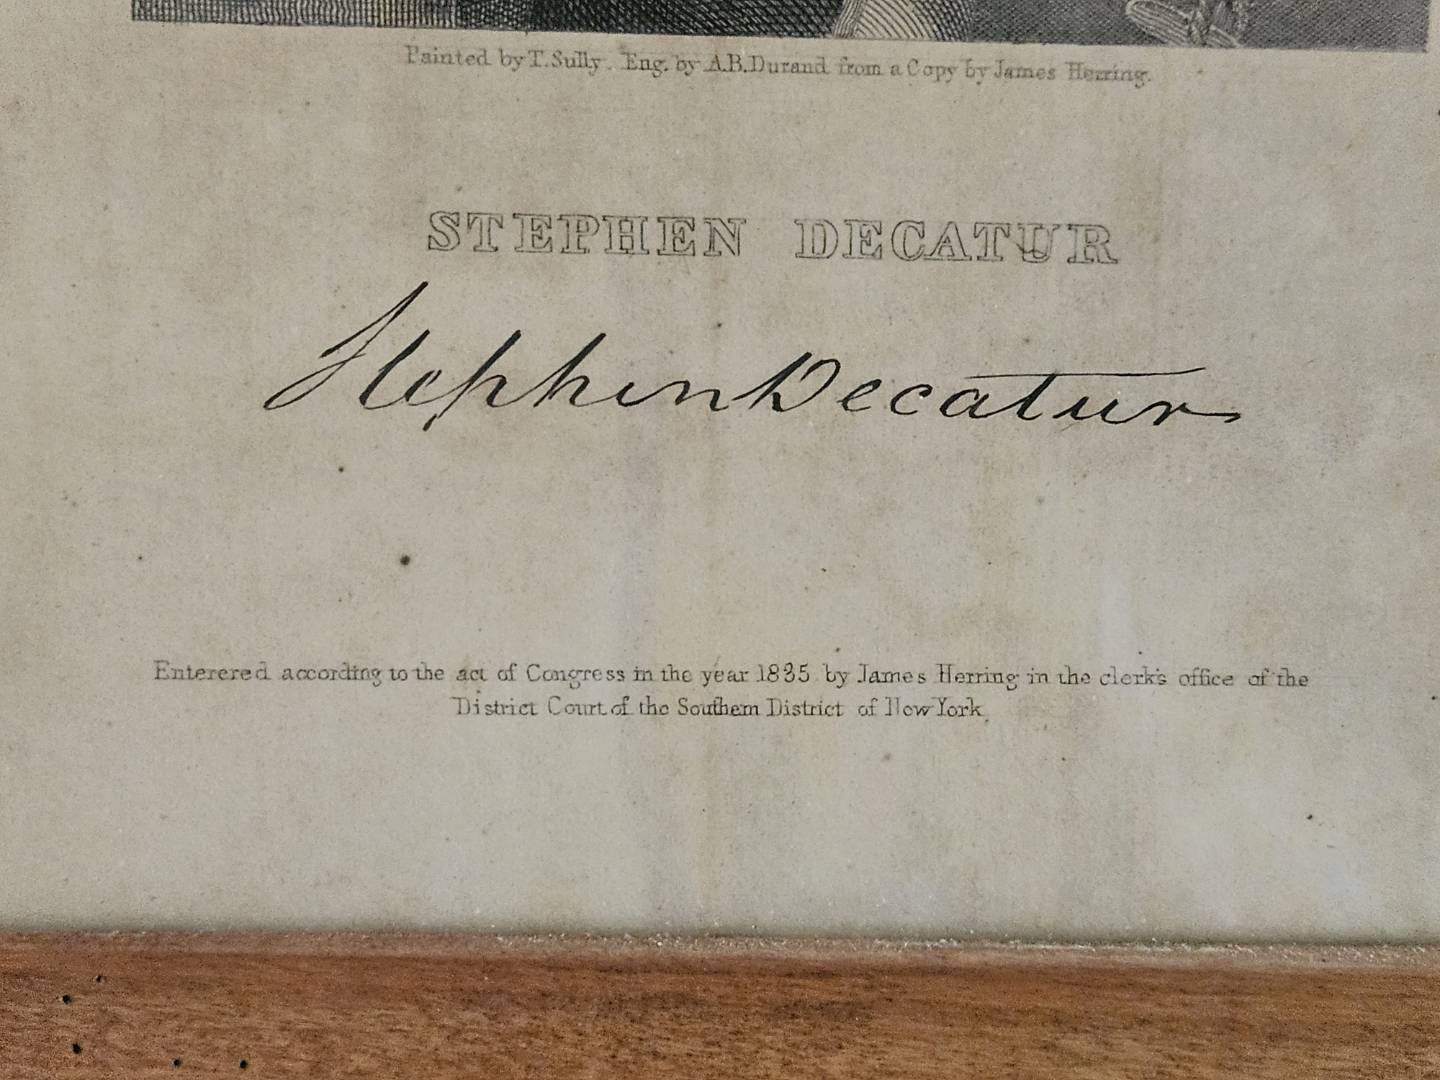 Painted by T. Sully. Eng. by A.B. Durand from a Copy by James Herring.
STEPHEN DECATUR
Stephen Decatur
Enterered according to the act of Congress in the year 1835 by James Herring in the clerk's office of the
District Court of the Southern District of New York.